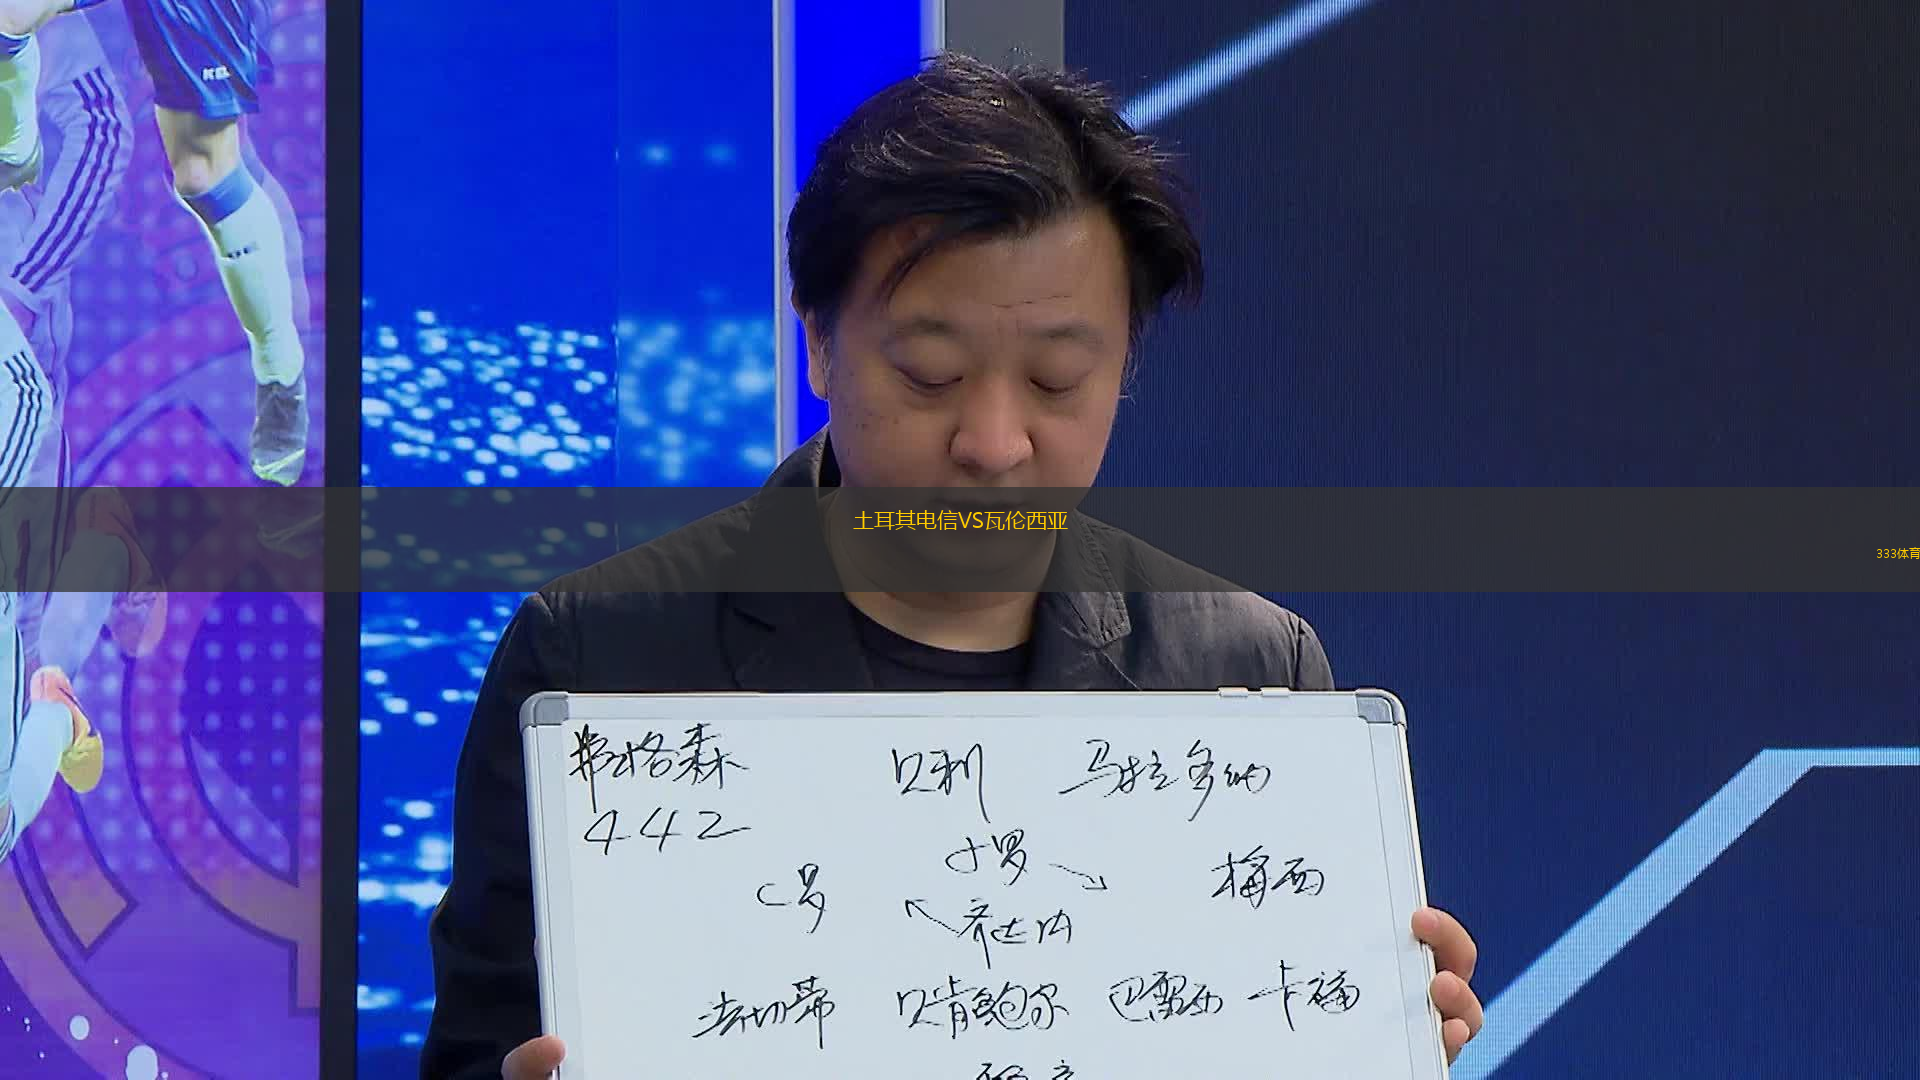 KEL
土耳其电信VS瓦伦西亚
333体育
弗格森 贝利 马拉多纳
442
小罗
C罗 梅西
齐达内
法切蒂 贝肯鲍尔 巴雷西 卡福